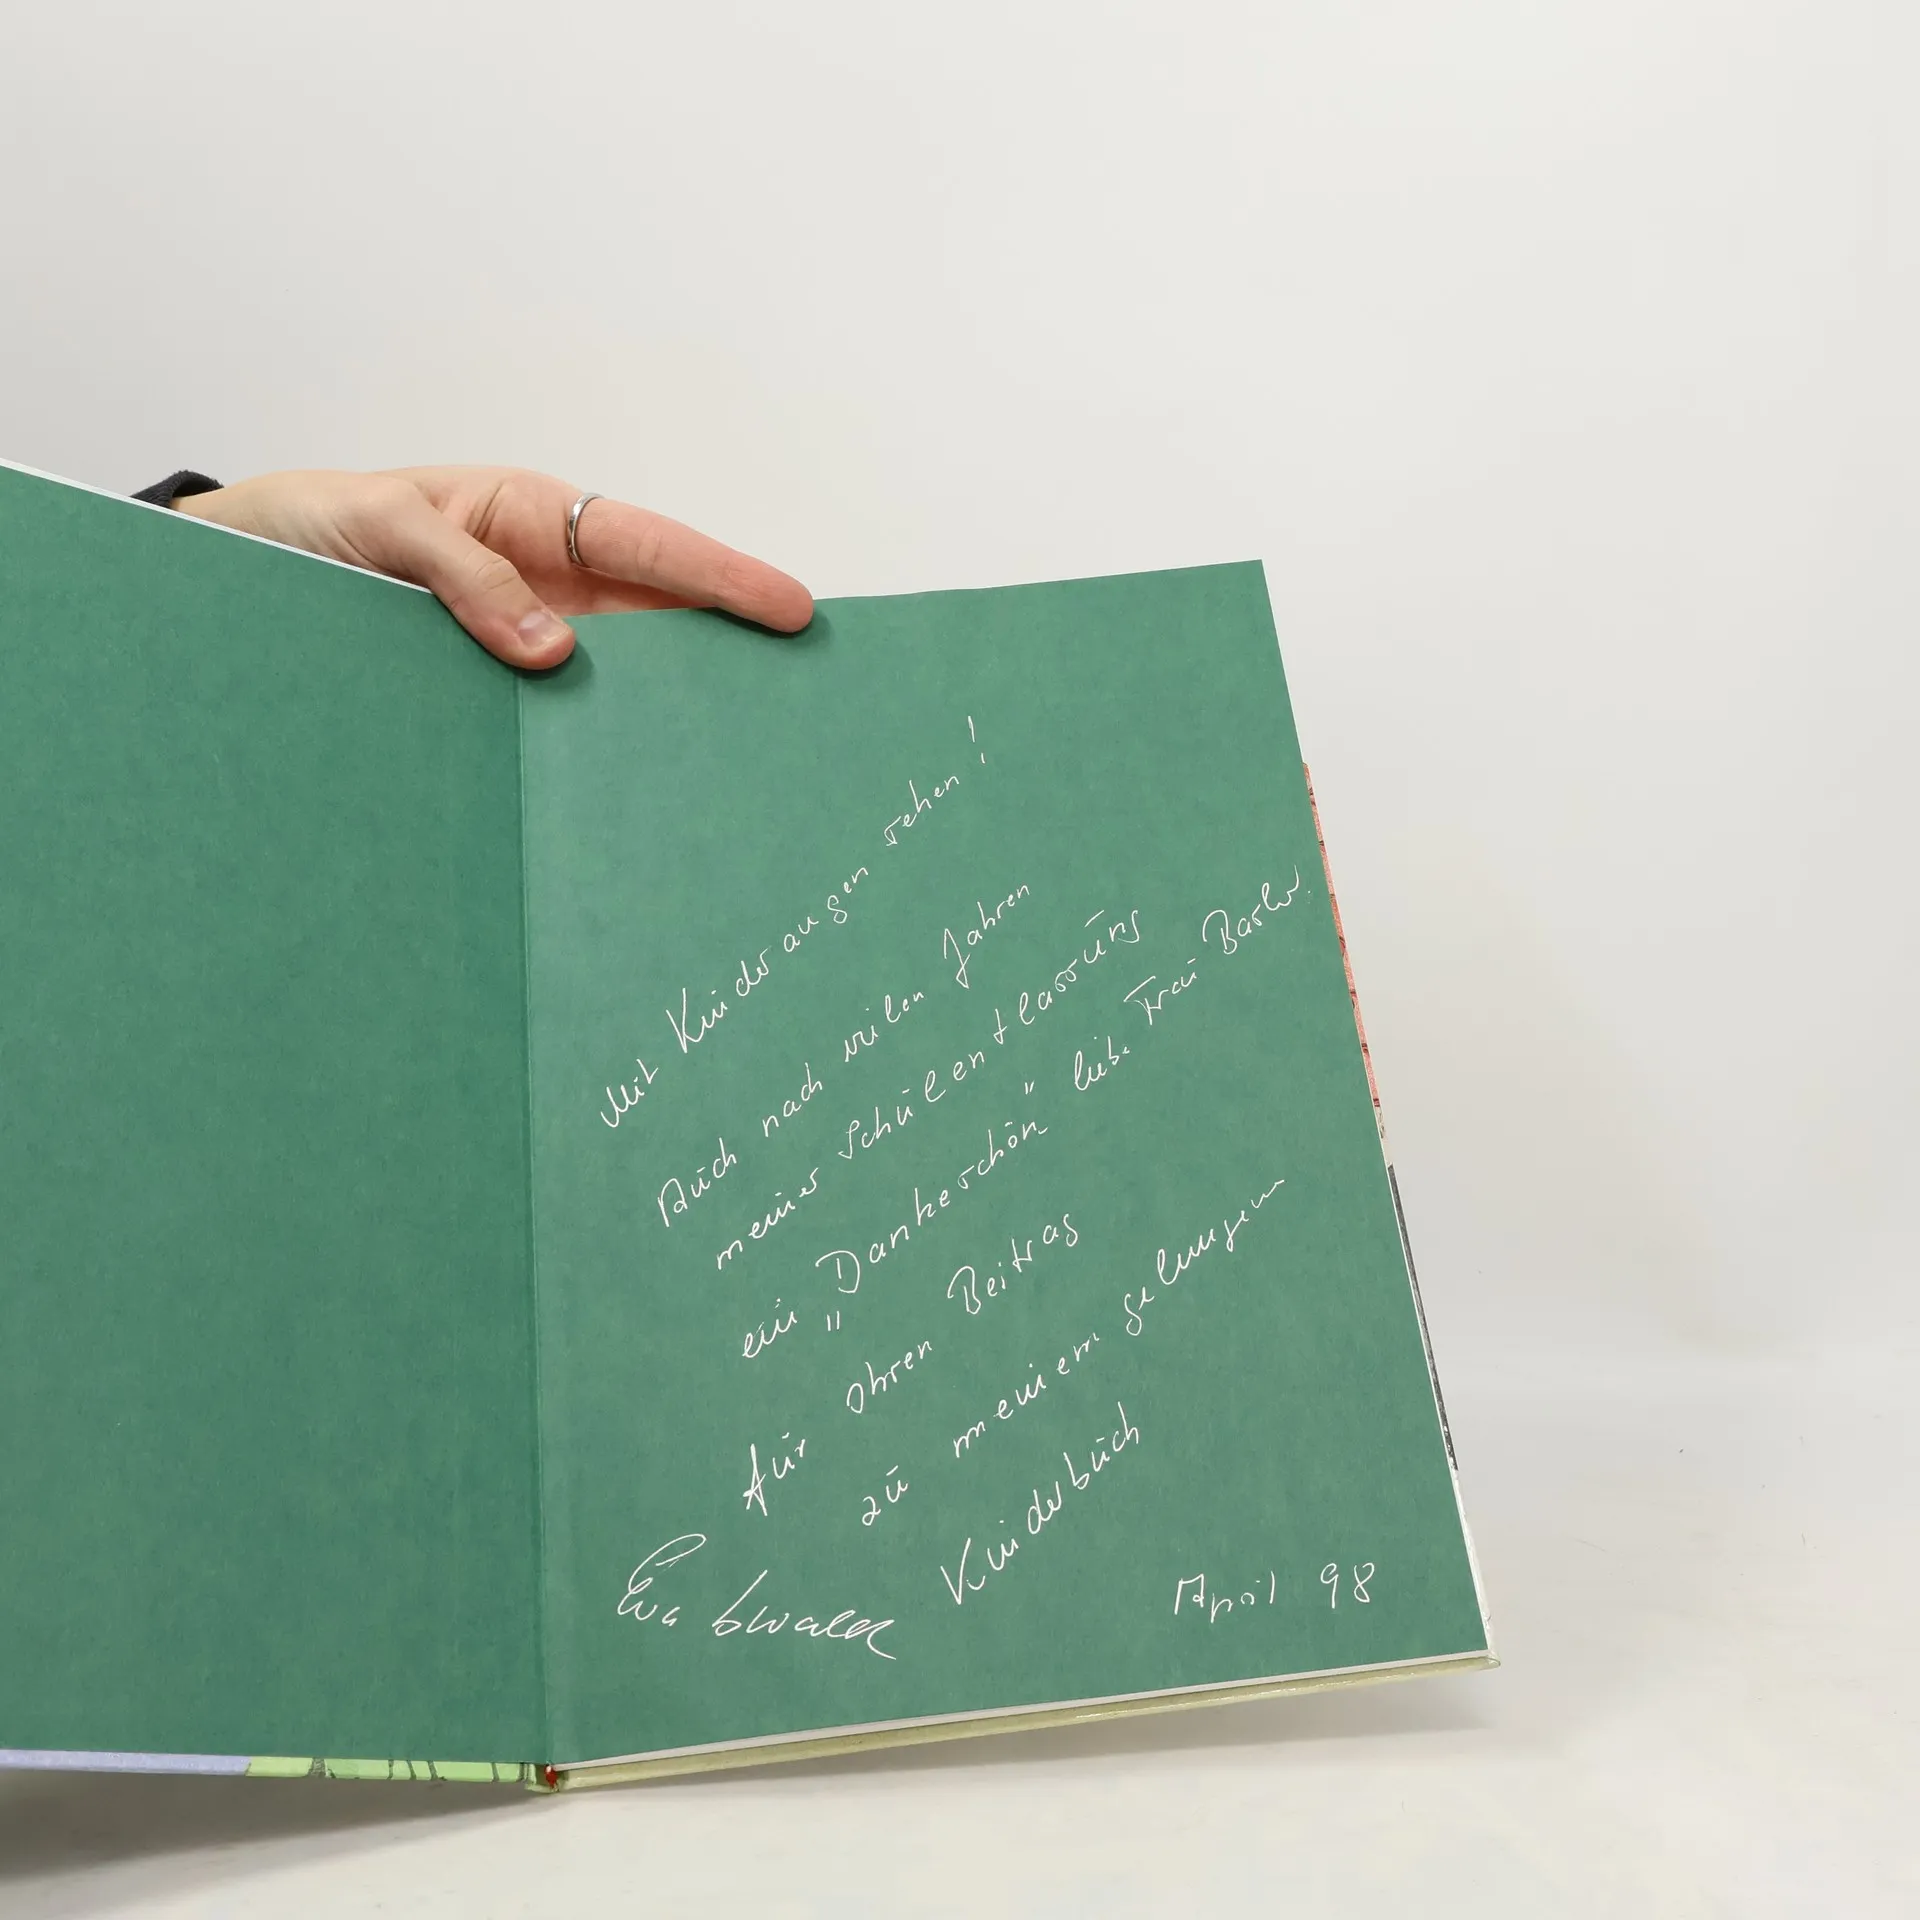 Mit Kinderaugen sehen!
Auch nach vielen Jahren
meiner Schulentlassung
ein „Dankeschön" liebe Frau
für Ihren Beitrag
zu meinem gelungenen
Kinderbuch
Eva
April 98